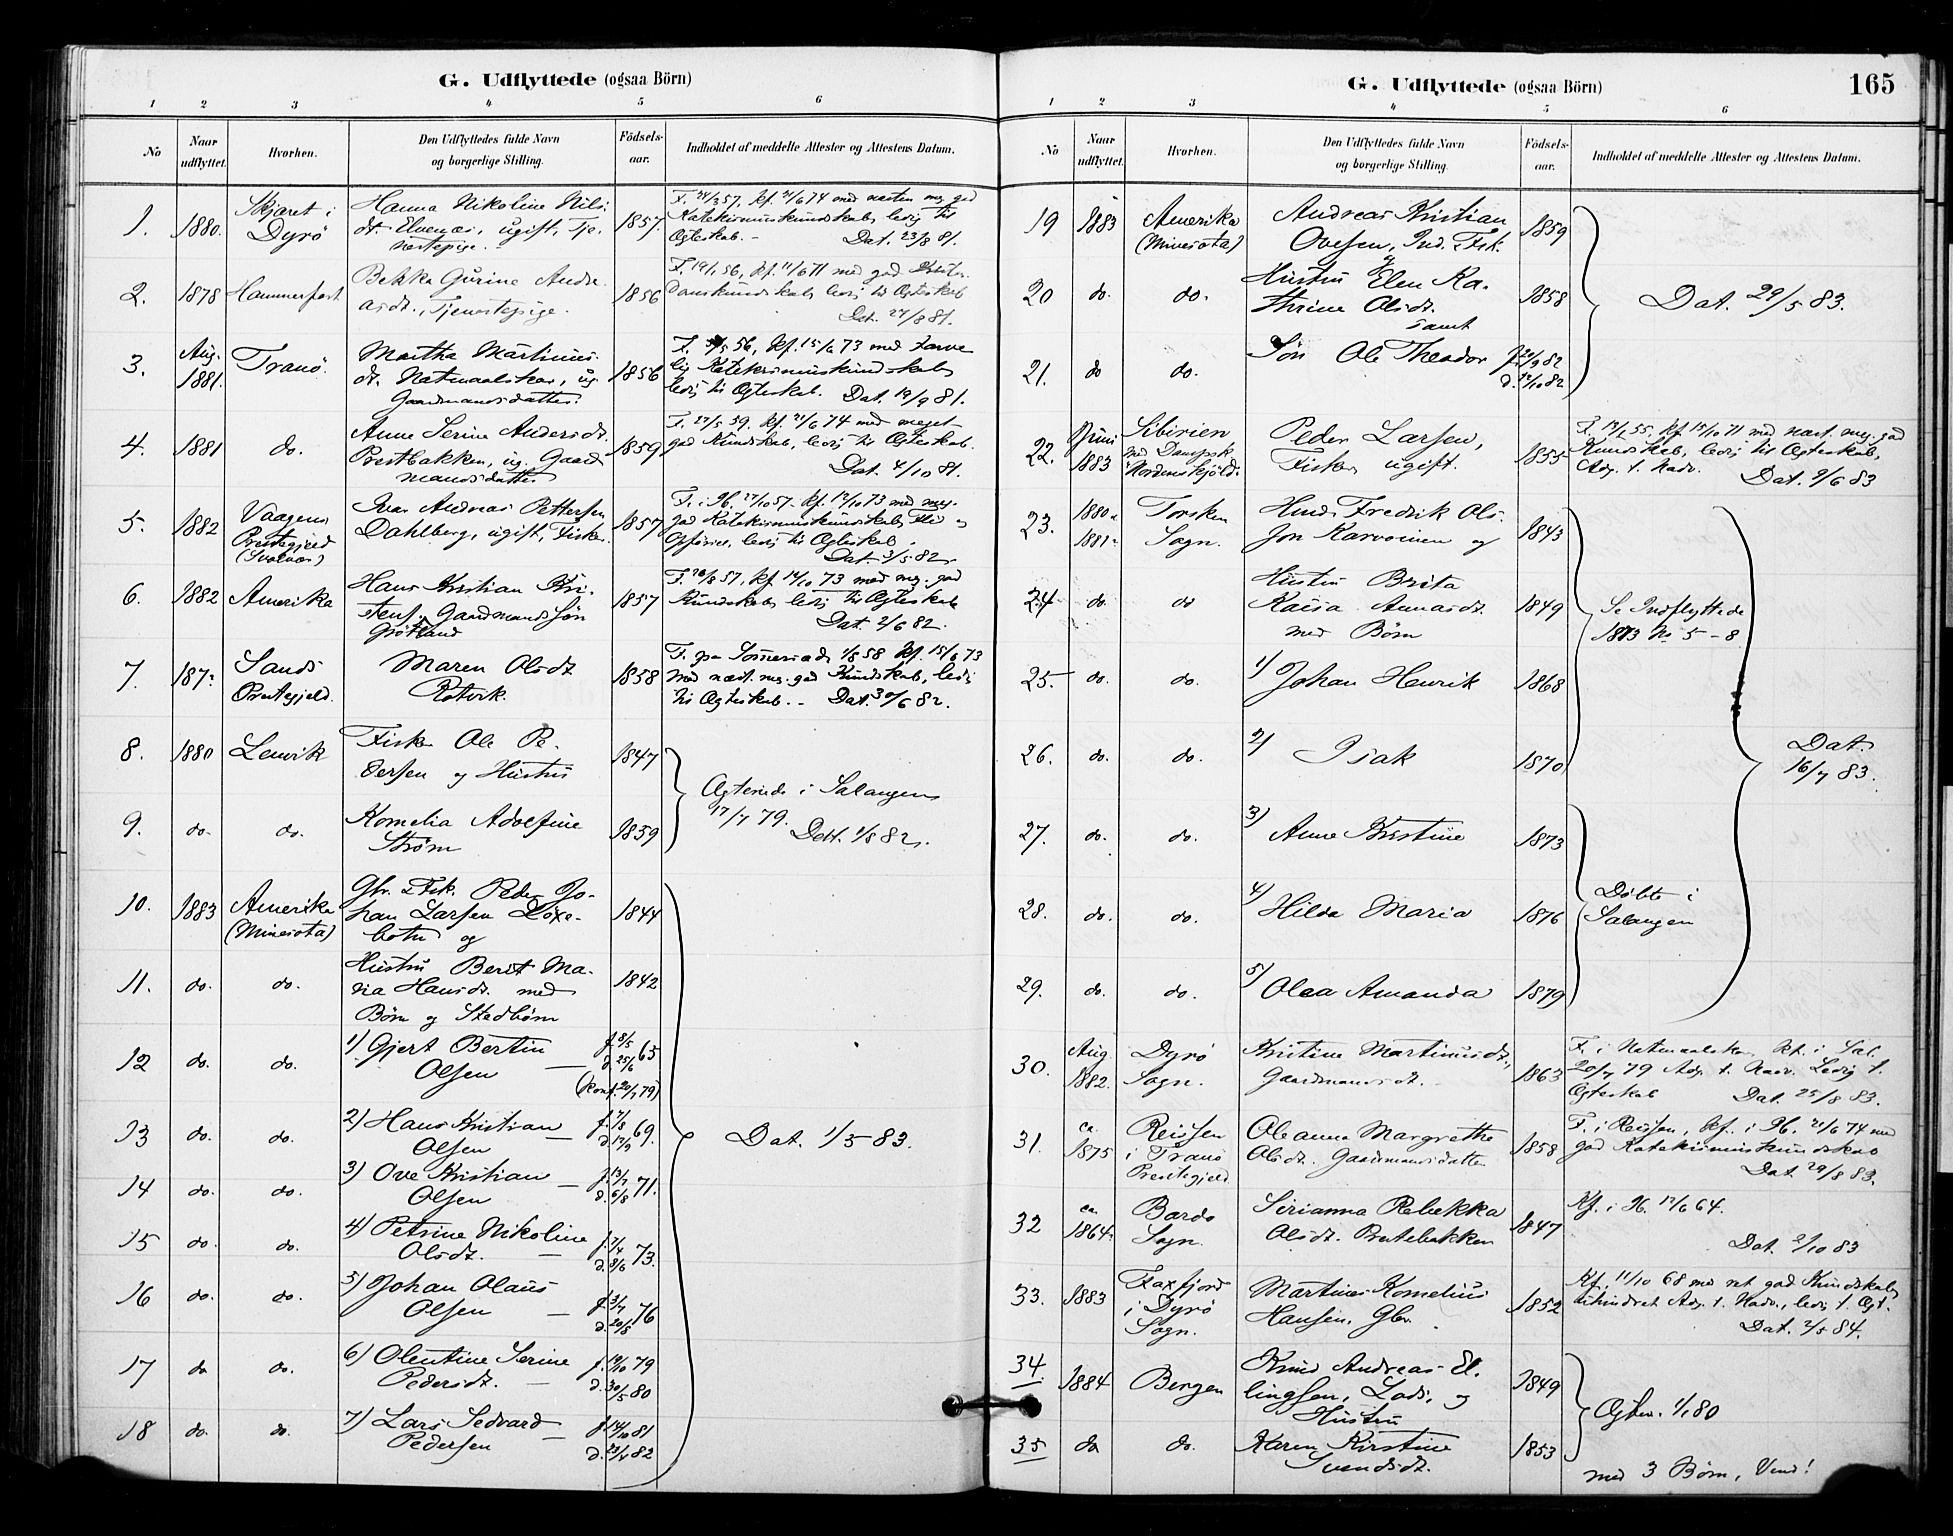 G. Udflyttede (ogsaa Börn)
1 2 3 4 5 6
No
Naar udflyttet.
Hvorhen.
Den Udflyttedes fulde Navn
og borgerlige Stilling.
Födsels-
aar.
Indholdet af meddelte Attester og Attestens Datum.
1. 1880. Skjæret i Dyrö
Hanna Nikoline Nils-
dt. Elvenæs, ugift, Tje-
nestepige.
1857.
F. 24/3 57, kf. 21/6 74 med næsten meg. god
Katekismuskundskab, ledig til
Egteskab. - Dat. 23/8 81.
2. 1878 Hammerfest
Bekka Gurine Andre-
asdt., Tjenestepige.
1856
F. 19/1 56, kf. 11/6 71 med god Kriste-
domskundskab, ledig til Egteskab
Dat. 27/8 81.
3. Aug. 1881. Tranö.
Martha Martinus-
dt. Natmaalskar, ug.
Gaardmandsdatter.
1856
56, kf. 15/6 73 med tarve-
lig Katekismuskundskab,
ledig til Egteskab. Dat. 19/9 81.
4. 1881 do.
Anne Serine Andersdt.
Prestbakken, ug. Gaard-
mansdatter
1859
F. 27/5 59. kf. 21/6 74 med meget
god Kundskab, ledig til Egteskab.
Dat. 4/10 81.
5. 1882 Vaagens
Prestegjeld
(Svolvær)
Ivar Andreas Pettersen
Dahlberg, ugift, Fisker
1857
F. i Ib. 27/10 57. kf. 12/10 73 med meg.
god Katekismuskundskab, Flid og
Opførsel, ledig til Egteskab.
Dat. 3/5 82.
6. 1882 Amerika
Hans Kristian Kri-
stens. Gaardmandssøn
Grötland
1857
F. 26/8 57, kf 14/10 73 med meg. god
Kundskab, ledig til Egteskab
Dat. 2/6 82.
7. 187? Sands
Prestegjeld.
Maren Olsdt
Rotvik.
1858
F. paa 1/8 58 kf. 15/6 73
med næst. meg. god Kundskab, ledig
til Egteskab. - Dat. 30/6 82.
8. 1880 Lenvik
Fisker Ole Pe-
dersen og Hustru
1847
9. do. do.
Kornelia Adolfine
Strøm
1859
Egteviede i Salangen
17/7 79. Dat. 1/8 82.
10. 1883 Amerika
(Minesota)
Gbr. & Fsk. Peder Jo-
han Larsen Løxe-
botn og
1844
11. do. do.
Hustru Berit Ma-
ria Hansdt. med
Børn og Stedbørn
1842
12 do. do.
1) Gjert Bertin
Olsen
f. 8/5
d. 25/6 65
(konf. 20/7 79)
13 do. do.
2) Hans Kristian
Olsen
f. 7/8
d. 17/9 69.
14 do. do.
3) Ove Kristian
Olsen
f. 13/7
d. 6/8 71.
15 do. do.
4) Petrine Nikoline
Olsdt.
f. 7/4
d. 8/6 73.
16 do. do.
5) Johan Olaus
Olsen
f. 3/7
d. 20/5 76
17 do do.
6) Olentine Serine
Pedersdt.
f. 19/10 79
d. 30/5 80
18 do. do.
7) Lars Sedvard
Pedersen
f. 14/10 81
d. 23/4 82
Dat. 1/5 83.
G. Udflyttede (ogsaa Börn)
165
1 2 3 4 5 6
No
Naar udflyttet.
Hvorhen.
Den Udflyttedes fulde Navn
og borgerlige Stilling.
Födsels-
aar.
Indholdet af meddelte Attester og Attestens Datum.
19 1883 Amerika
(Minesota)
Andreas Kristian
Ovesen, Ind. Fsk.
og
1859
20 do. do.
Hustru Elen Ka-
thrine Olsdt.
samt
1858
21. do do.
Søn Ole Theodor
f. 20/9 82
d. 12/10 82
Dat. 29/5 83.
22. Juni 1883
Sibirien
med Dampsk.
Nordenskjöld.
Peder Larsen,
Fisker, ugift.
1855
F. 14/2 55, kf 15/10 71 med næst. meg. god
Kundskab, ledig til Egteskab,
Adg. t. Nadv. Dat. 9/6 83
23. 1880 a 1881
Torsken
Sogn.
Huusm. Fredrik Ols.
Jon Karvonen og
1843
24 do. do
Hustru Brita
Kaisa Annasdt.
med Børn
1849
Se Indflyttede
1873 No 5-8
25. do. do.
1) Johan Henrik
1868
26. do. do.
2) Isak
1870
27. do. do.
3) Anne Kristine
1873
28. do. do.
4) Hilda Maria
1876
Døbte i
Salangen
29. do. do.
5) Olea Amanda
1879
Dat.
16/7 83.
30. Aug 1882.
Dyrö
Sogn.
Kristine Martinusdt.,
Gaardmandsdt.
1863
F. i Natmaalskar, kf. i Sal.
20/7 79 Adg. t. Nadv. Ledig t.
Egteskab Dat. 25/8 83.
31. ca 1875
Reissen
i Tranö
Prestegjeld
Oleanna Margrethe
Olsdt. Gaardmandsdatter
1858
F. i Reissen, kf. i Ib. 21/6 74 med
god Katekismuskundskab
Dat. 29/8 83.
32 ca 1864.
Bardo
Sogn.
Sirianna Rebekka
Olsdt. Prestebakken
1847
Kf. i Ib. 12/6 64.
Dat. 2/10 83
33. 1883
Faxfjord
i Dyrö
Sogn.
Martines Kornelius
Hansen, Gbr.
1852
Kf. 11/10 68 med ret god Kundskab,
uhindret Adg. t. Nadv., ledig t. Egt.
Dat. 2/5 84.
34. 1884 Bergen
Knud Andreas El-
lingsen, Lods, og
Hustru
1849
35 do do.
Karen Kirstine
Svendsdt.
1853
Egtev. 1/1 80
med 3 Børn, Vend!